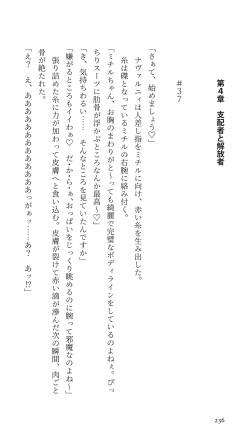 第4章　支配者と解放者
＃37
「さぁて、始めましょう♡」
　ナヴァルニィは人差し指をミチルに向け、赤い糸を生み出した。
　糸は磔となっているミチルの右腕に絡み付く。
「ミチルちゃん、お胸のまわりがと〜っても綺麗で完璧なボディラインをしているのよねぇ。ぴっ
ちりスーツに肋骨が浮かぶところなんか最高〜♡」
「き、気持ちわるい……　そんなところを見ていたんですか」
「嫌がるところもイイわぁ♡　だ・か・ら・ぁ、おっぱいをじっくり眺めるのに腕って邪魔なのよね〜」
　張り詰めた糸に力が加わって皮膚へと食い込む。皮膚が裂けて赤い滴が滲んだ次の瞬間、肉ごと
骨が絶たれた。
「えッ？　え、ああああああああああああああああっがぁッ……あ？　あッ!?」
236